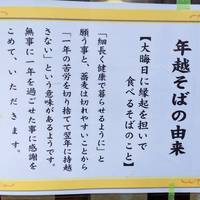 年越そばの由来
【大晦日に縁起を担いで
食べるそばのこと】
「細長く健康で暮らせるように」と
願う事と、蕎麦は切れやすいことから
「一年の苦労を切り捨てて翌年に持越
さない」という意味があるようです。
無事に一年を過ごせた事に感謝を
こめて、いただきます。